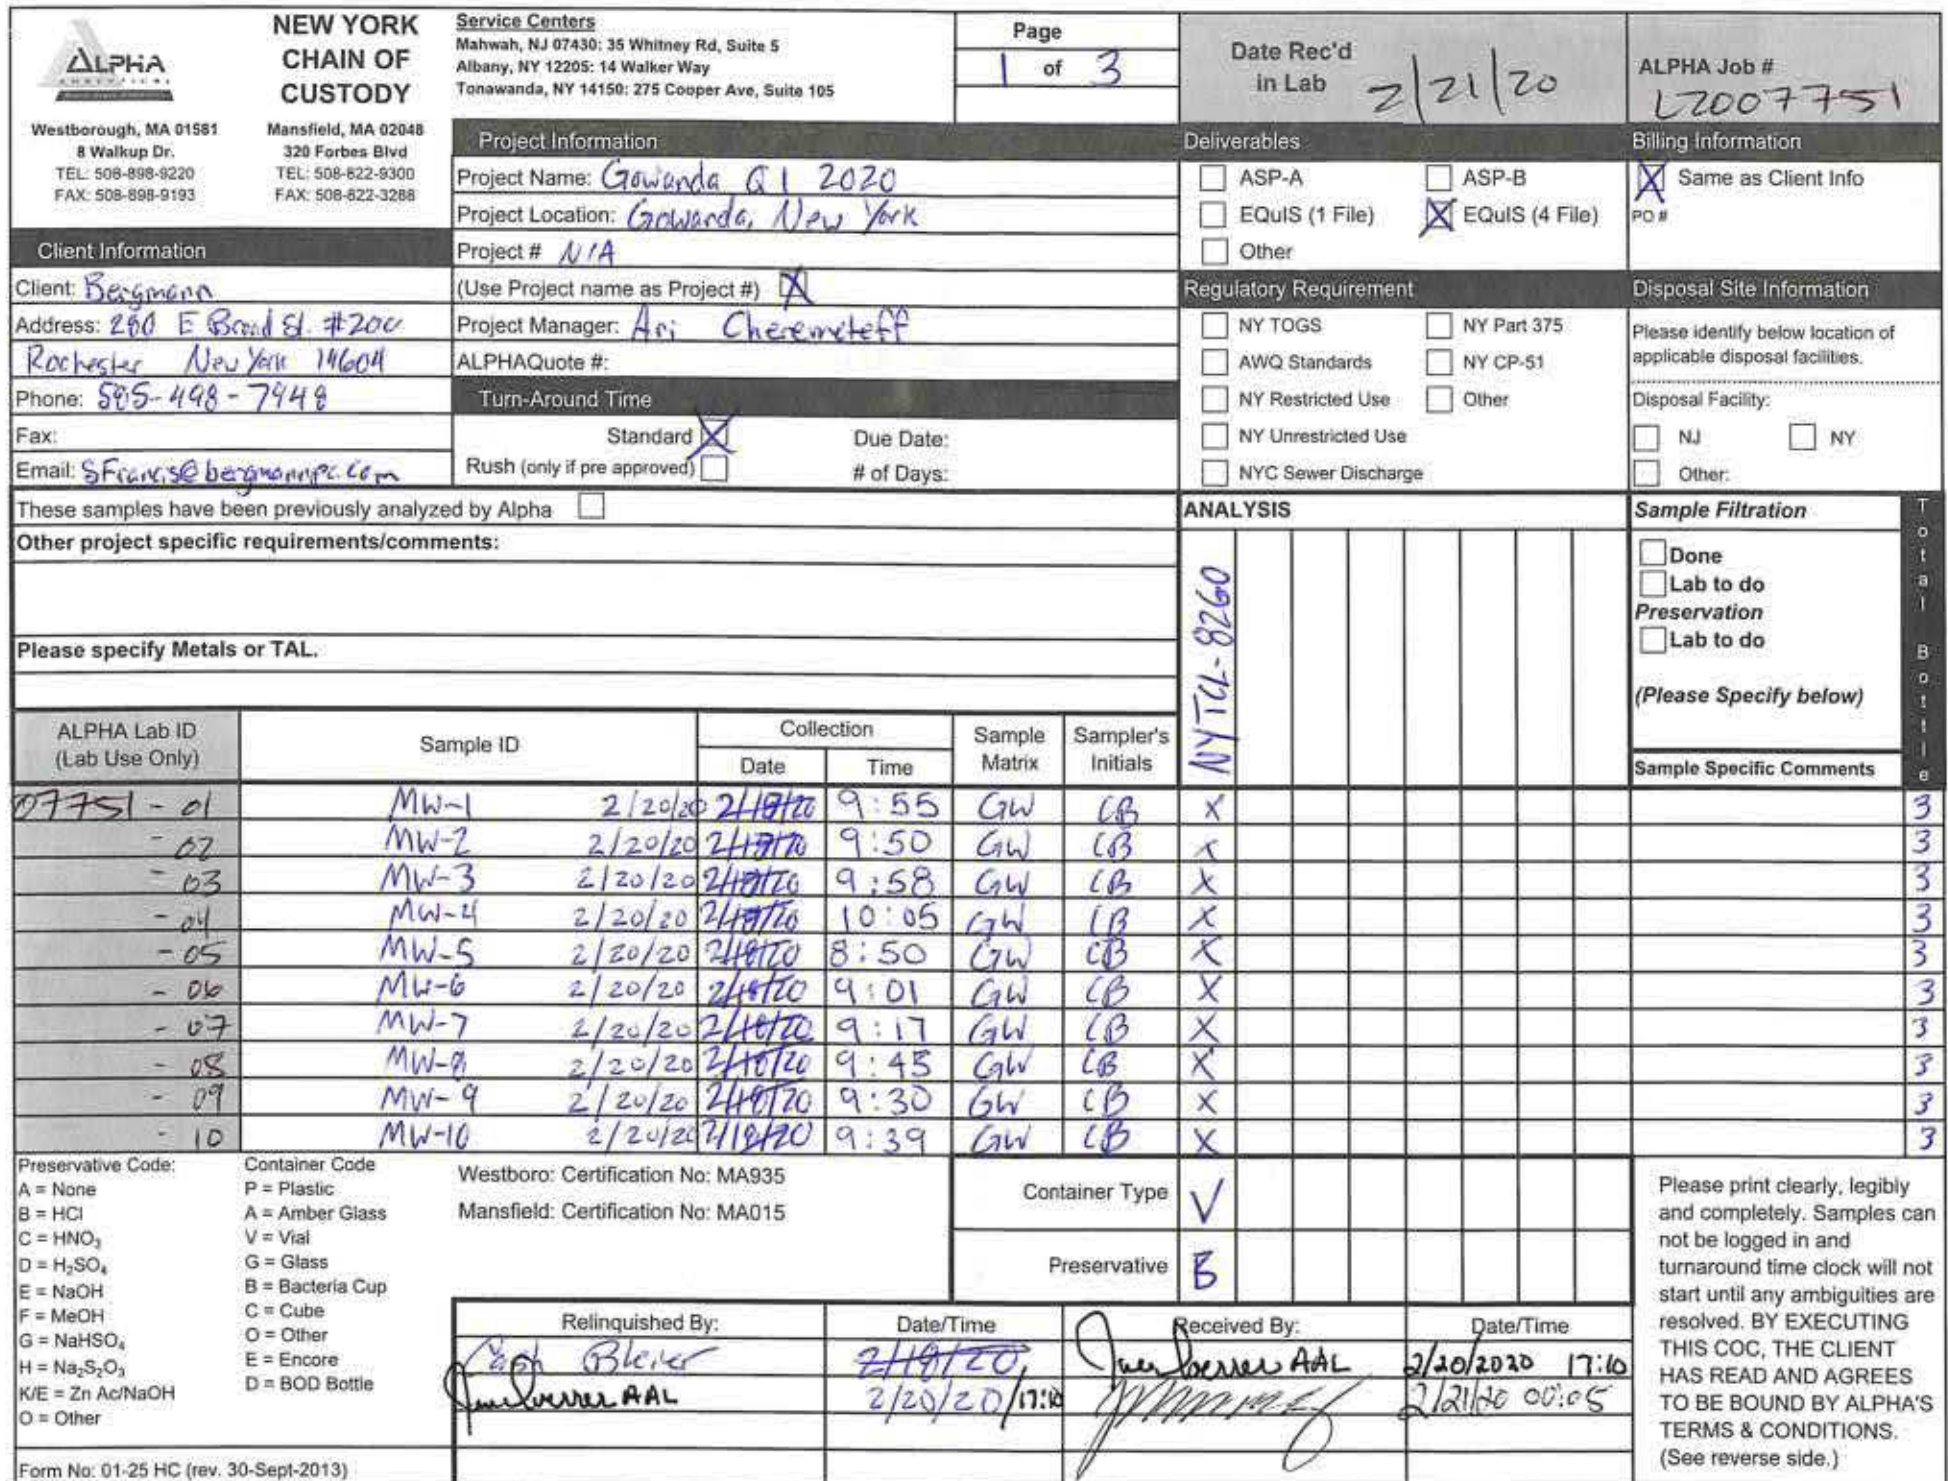 ALPHA
ANALYTICAL
NEW YORK
CHAIN OF
CUSTODY
Westborough, MA 01581
8 Walkup Dr.
TEL: 508-898-9220
FAX: 508-898-9193
Mansfield, MA 02048
320 Forbes Blvd
TEL: 508-822-9300
FAX: 508-822-3288
Service Centers
Mahwah, NJ 07430: 35 Whitney Rd, Suite 5
Albany, NY 12205: 14 Walker Way
Tonawanda, NY 14150: 275 Cooper Ave, Suite 105
Page
1 of 3
Date Rec'd
in Lab 2/21/20
ALPHA Job #
L2007751
Client Information
Client: Bergmann
Address: 280 E Broad St. #200
Rochester New York 14604
Phone: 585-498-7948
Fax:
Email: SFrancis@bergmannpc.com
Project Information
Project Name: Gowanda Q1 2020
Project Location: Gowanda, New York
Project # N/A
(Use Project name as Project #) X
Project Manager: Ari Cheremeteff
ALPHAQuote #:
Turn-Around Time
Standard X Due Date:
Rush (only if pre approved) # of Days:
Deliverables
ASP-A ASP-B
EQuIS (1 File) X EQuIS (4 File)
Other
Regulatory Requirement
NY TOGS NY Part 375
AWQ Standards NY CP-51
NY Restricted Use Other
NY Unrestricted Use
NYC Sewer Discharge
Billing Information
X Same as Client Info
PO #
Disposal Site Information
Please identify below location of
applicable disposal facilities.
Disposal Facility:
NJ NY
Other:
These samples have been previously analyzed by Alpha
Other project specific requirements/comments:
Please specify Metals or TAL.
ANALYSIS
NYTCL-8260
Sample Filtration
Done
Lab to do
Preservation
Lab to do
(Please Specify below)
Total Bottle
ALPHA Lab ID
(Lab Use Only)
Sample ID
Collection
Date Time
Sample
Matrix
Sampler's
Initials
Sample Specific Comments
07751 - 01 MW-1 2/20/20 2/18/20 9:55 GW CB X 3
- 02 MW-2 2/20/20 2/18/20 9:50 GW CB X 3
- 03 MW-3 2/20/20 2/18/20 9:58 GW CB X 3
- 04 MW-4 2/20/20 2/18/20 10:05 GW CB X 3
- 05 MW-5 2/20/20 2/18/20 8:50 GW CB X 3
- 06 MW-6 2/20/20 2/18/20 9:01 GW CB X 3
- 07 MW-7 2/20/20 2/18/20 9:17 GW CB X 3
- 08 MW-8 2/20/20 2/18/20 9:45 GW CB X 3
- 09 MW-9 2/20/20 2/18/20 9:30 GW CB X 3
- 10 MW-10 2/20/20 2/18/20 9:39 GW CB X 3
Preservative Code:
A = None
B = HCl
C = HNO₃
D = H₂SO₄
E = NaOH
F = MeOH
G = NaHSO₄
H = Na₂S₂O₃
K/E = Zn Ac/NaOH
O = Other
Container Code
P = Plastic
A = Amber Glass
V = Vial
G = Glass
B = Bacteria Cup
C = Cube
O = Other
E = Encore
D = BOD Bottle
Westboro: Certification No: MA935
Mansfield: Certification No: MA015
Container Type V
Preservative B
Relinquished By: Date/Time Received By: Date/Time
Bleier 2/18/20 AAL 2/20/2020 17:10
AAL 2/20/20/17:10 2/21/20 00:05
Please print clearly, legibly
and completely. Samples can
not be logged in and
turnaround time clock will not
start until any ambiguities are
resolved. BY EXECUTING
THIS COC, THE CLIENT
HAS READ AND AGREES
TO BE BOUND BY ALPHA'S
TERMS & CONDITIONS.
(See reverse side.)
Form No: 01-25 HC (rev. 30-Sept-2013)